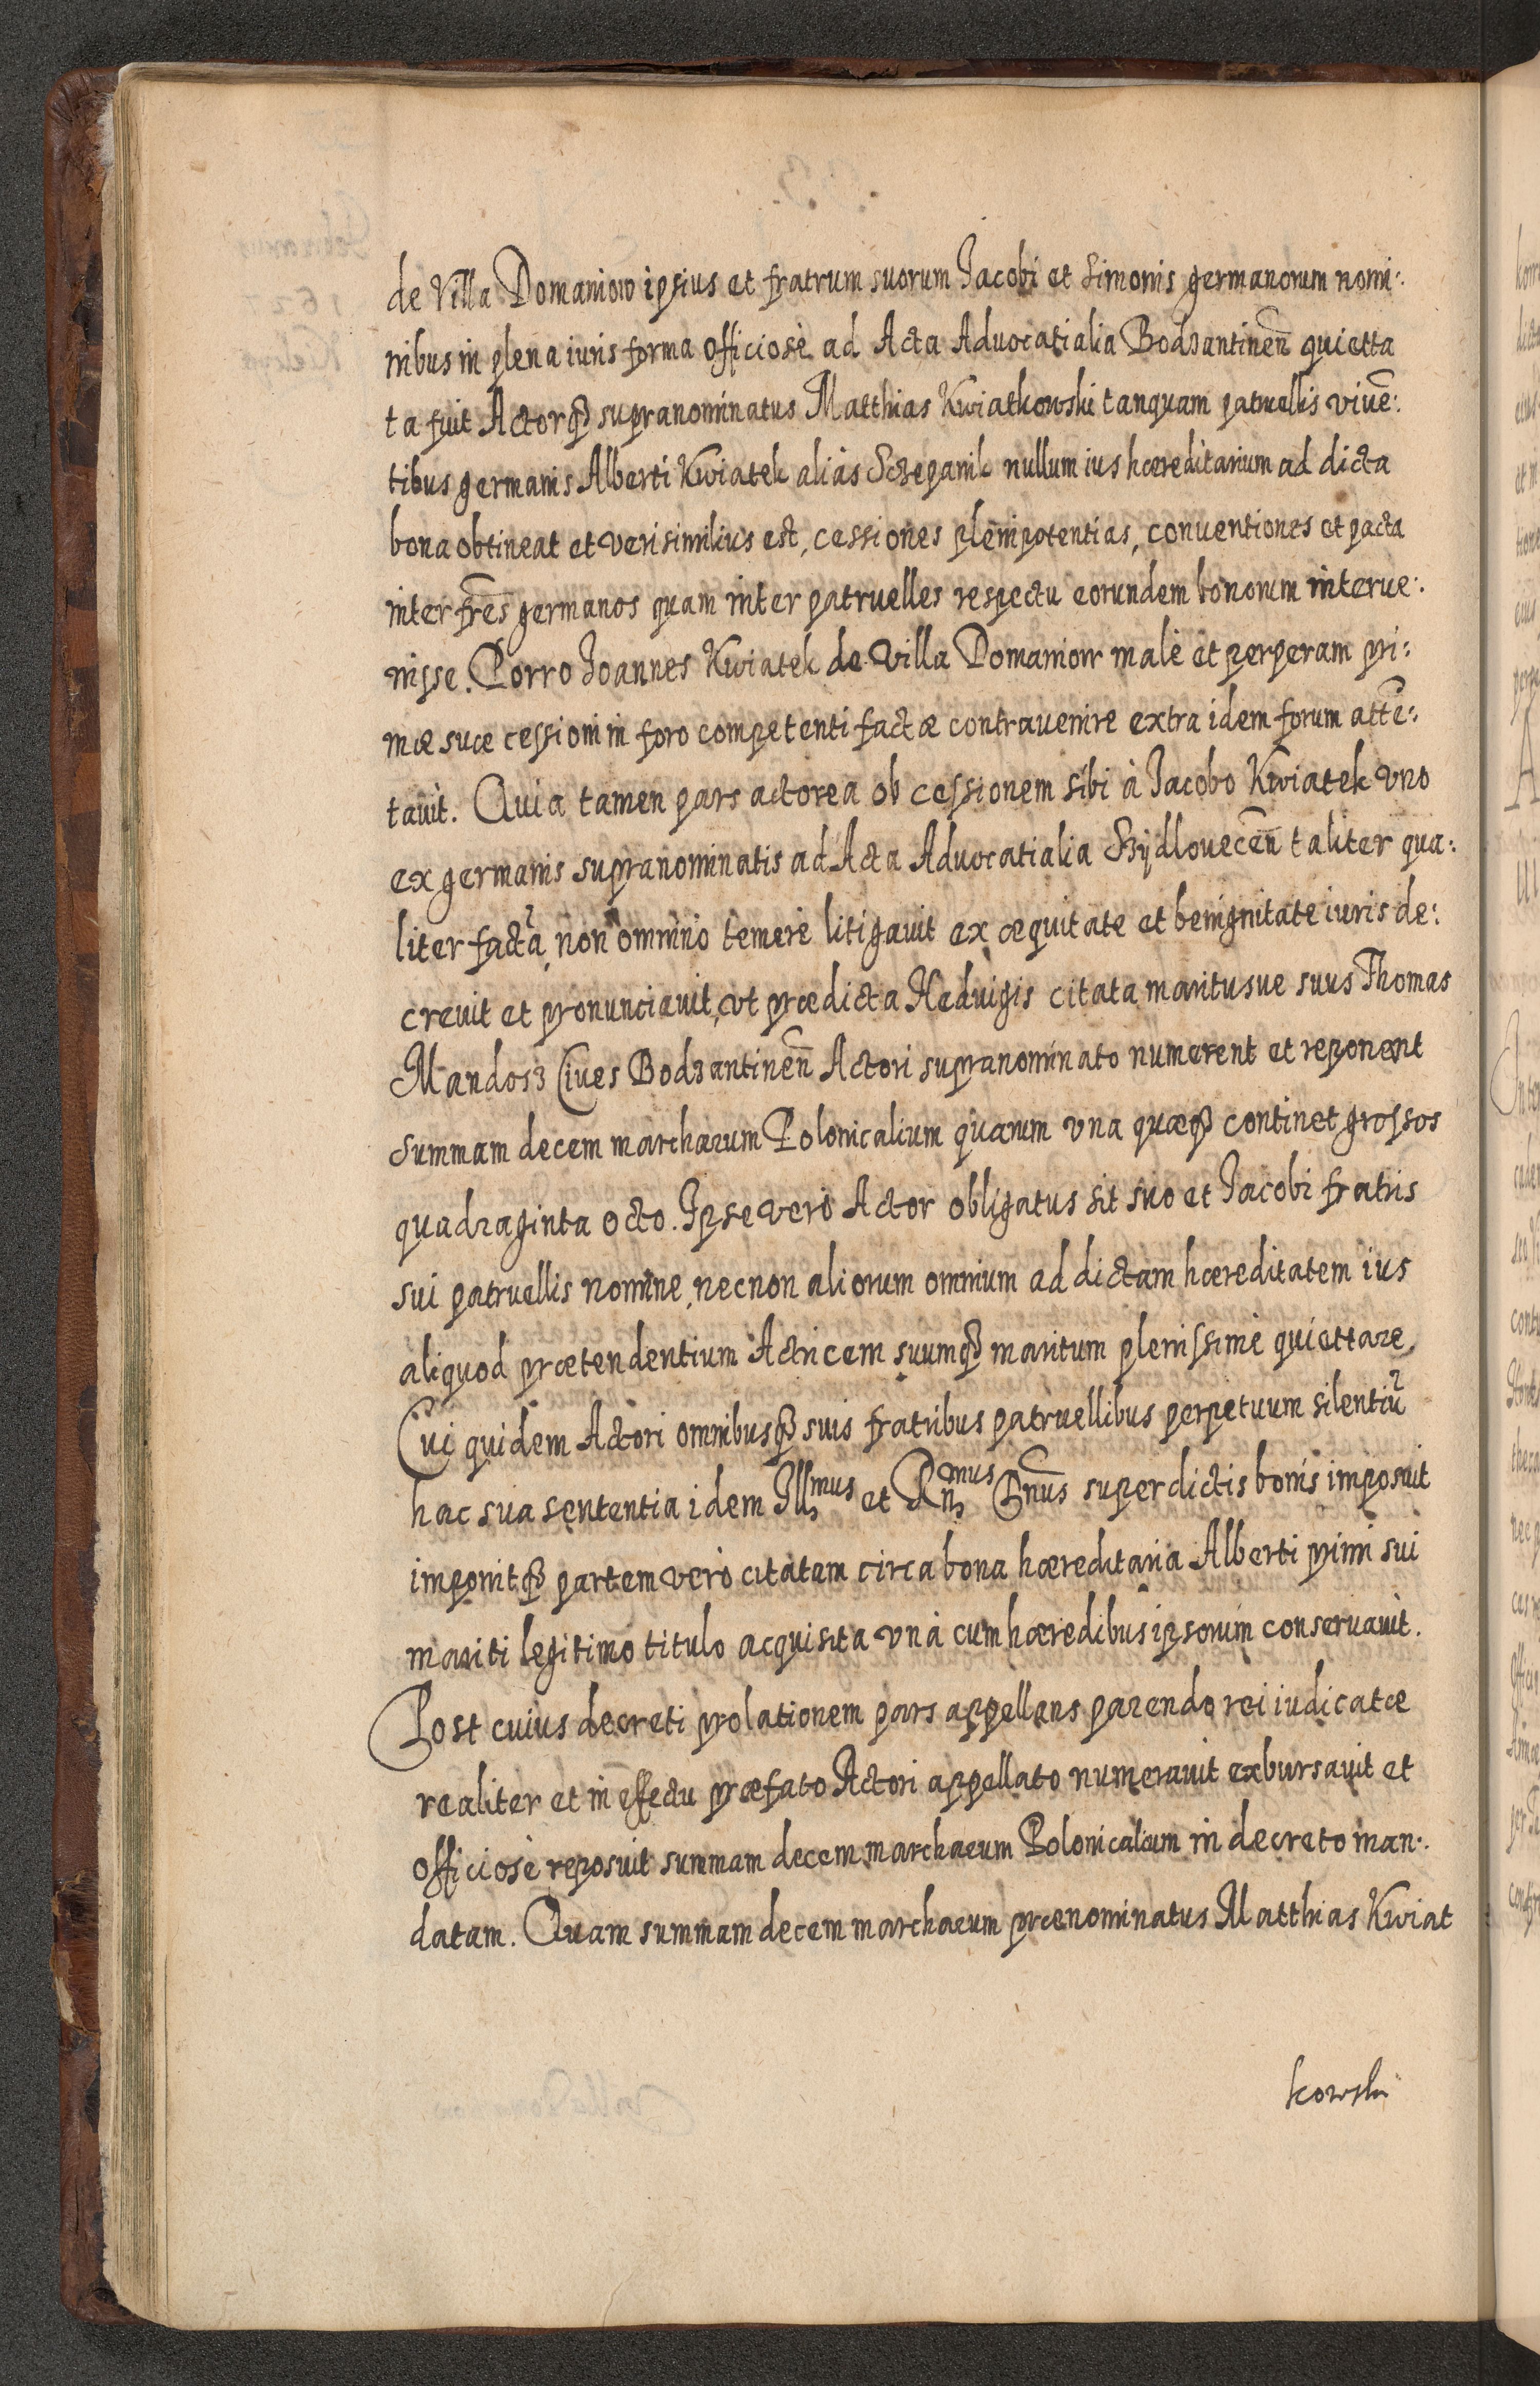 de Villa Domaniow ipsius et fratrum suorum Jacobi et Simonis germanorum nomi:
nibus in plena iuris forma officiosè ad Acta Advocatialia Bodzantineñ quietta
ta fuit Actorq̃ supranominatus Matthias Kwiatkowski tanquam patruelis vivẽ:
tibus germanis Alberti Kwiatek aliàs Sczepanik nullum ius hæreditarium ad dicta
bona obtineat et verisimilius est, cessiones plenipotentias, conventiones et pacta
inter fr̃es germanos quam inter patruelles respectu eorundem bonorum interue:
nisse. Porro Joannes Kwiatek de Villa Domaniow malè et perperam pri:
mæ suæ cessioni in foro competenti factæ contrauenire extra idem forum attẽ:
tauit. Quia tamen pars actorea ob cessionem sibi à Jacobo Kwiatek vno
ex germanis supranominatis ad Acta Advocatialia Szÿdloueceñ taliter qua:
liter factã, non omnino temerè litigauit ex æquitate et benignitate iuris de:
creuit et pronunciauit, vt prædicta Hedvigis citata maritusue suus Thomas
Mandosz Ciues Bodzantineñ Actori supranominato numerent et reponent
summam decem marcharum Polonicalium quarum vna quæq̃ continet grossos
quadraginta octo. Ipse verò Actor obligatus sit suo et Jacobi fratris
sui patruellis nomine, necnon aliorum omnium ad dictam hæreditatem ius
aliquod prætendentium Actricem suumq̃ maritum plenissimè quiettare,
Cui quidem Actori omnibusq̃ suis fratribus patruellibus perpetuum silentiũ
hac sua sententia idem Illmus et Rñmus Dñus super dictis bonis imposuit
imponitq̃ partem verò citatam circa bona hæreditaria Alberti primi sui
mariti legitimo titulo acquisita vnà cum hæredibus ipsorum conseruauit.
Post cuius decreti prolationem pars appellans parendo rei iudicatæ
realiter et in effectu præfato Actori appellato numerauit exbursauit et
officiosè reposuit summam decem marcharum Polonicalium in decreto man:
datam. Quam summam decem marcharum prænominatus Matthias Kwiat
kowski